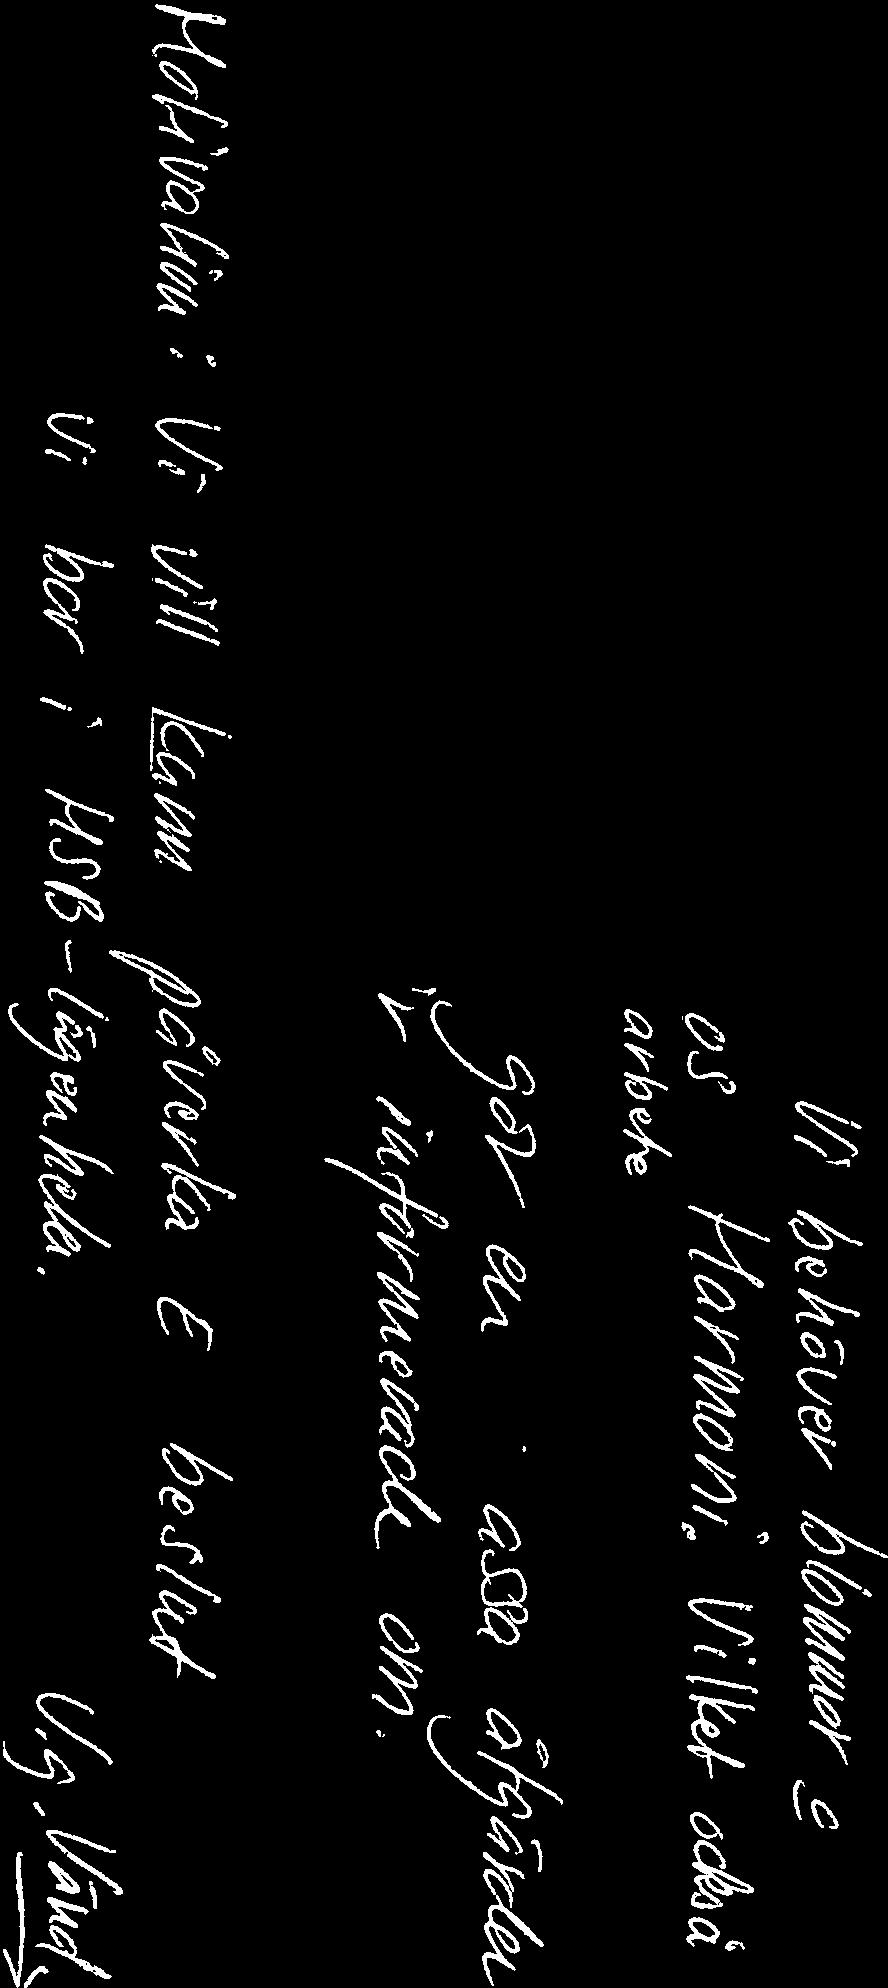 Vi behöver blommor e
os Harmoni. Vilket också
arbete
gör en assa åtgärder
vi informerade om.
Motivation: Vi vill kunn påverka E beslut
vi bor i HSB-lägenheta.
V.g. Vänd